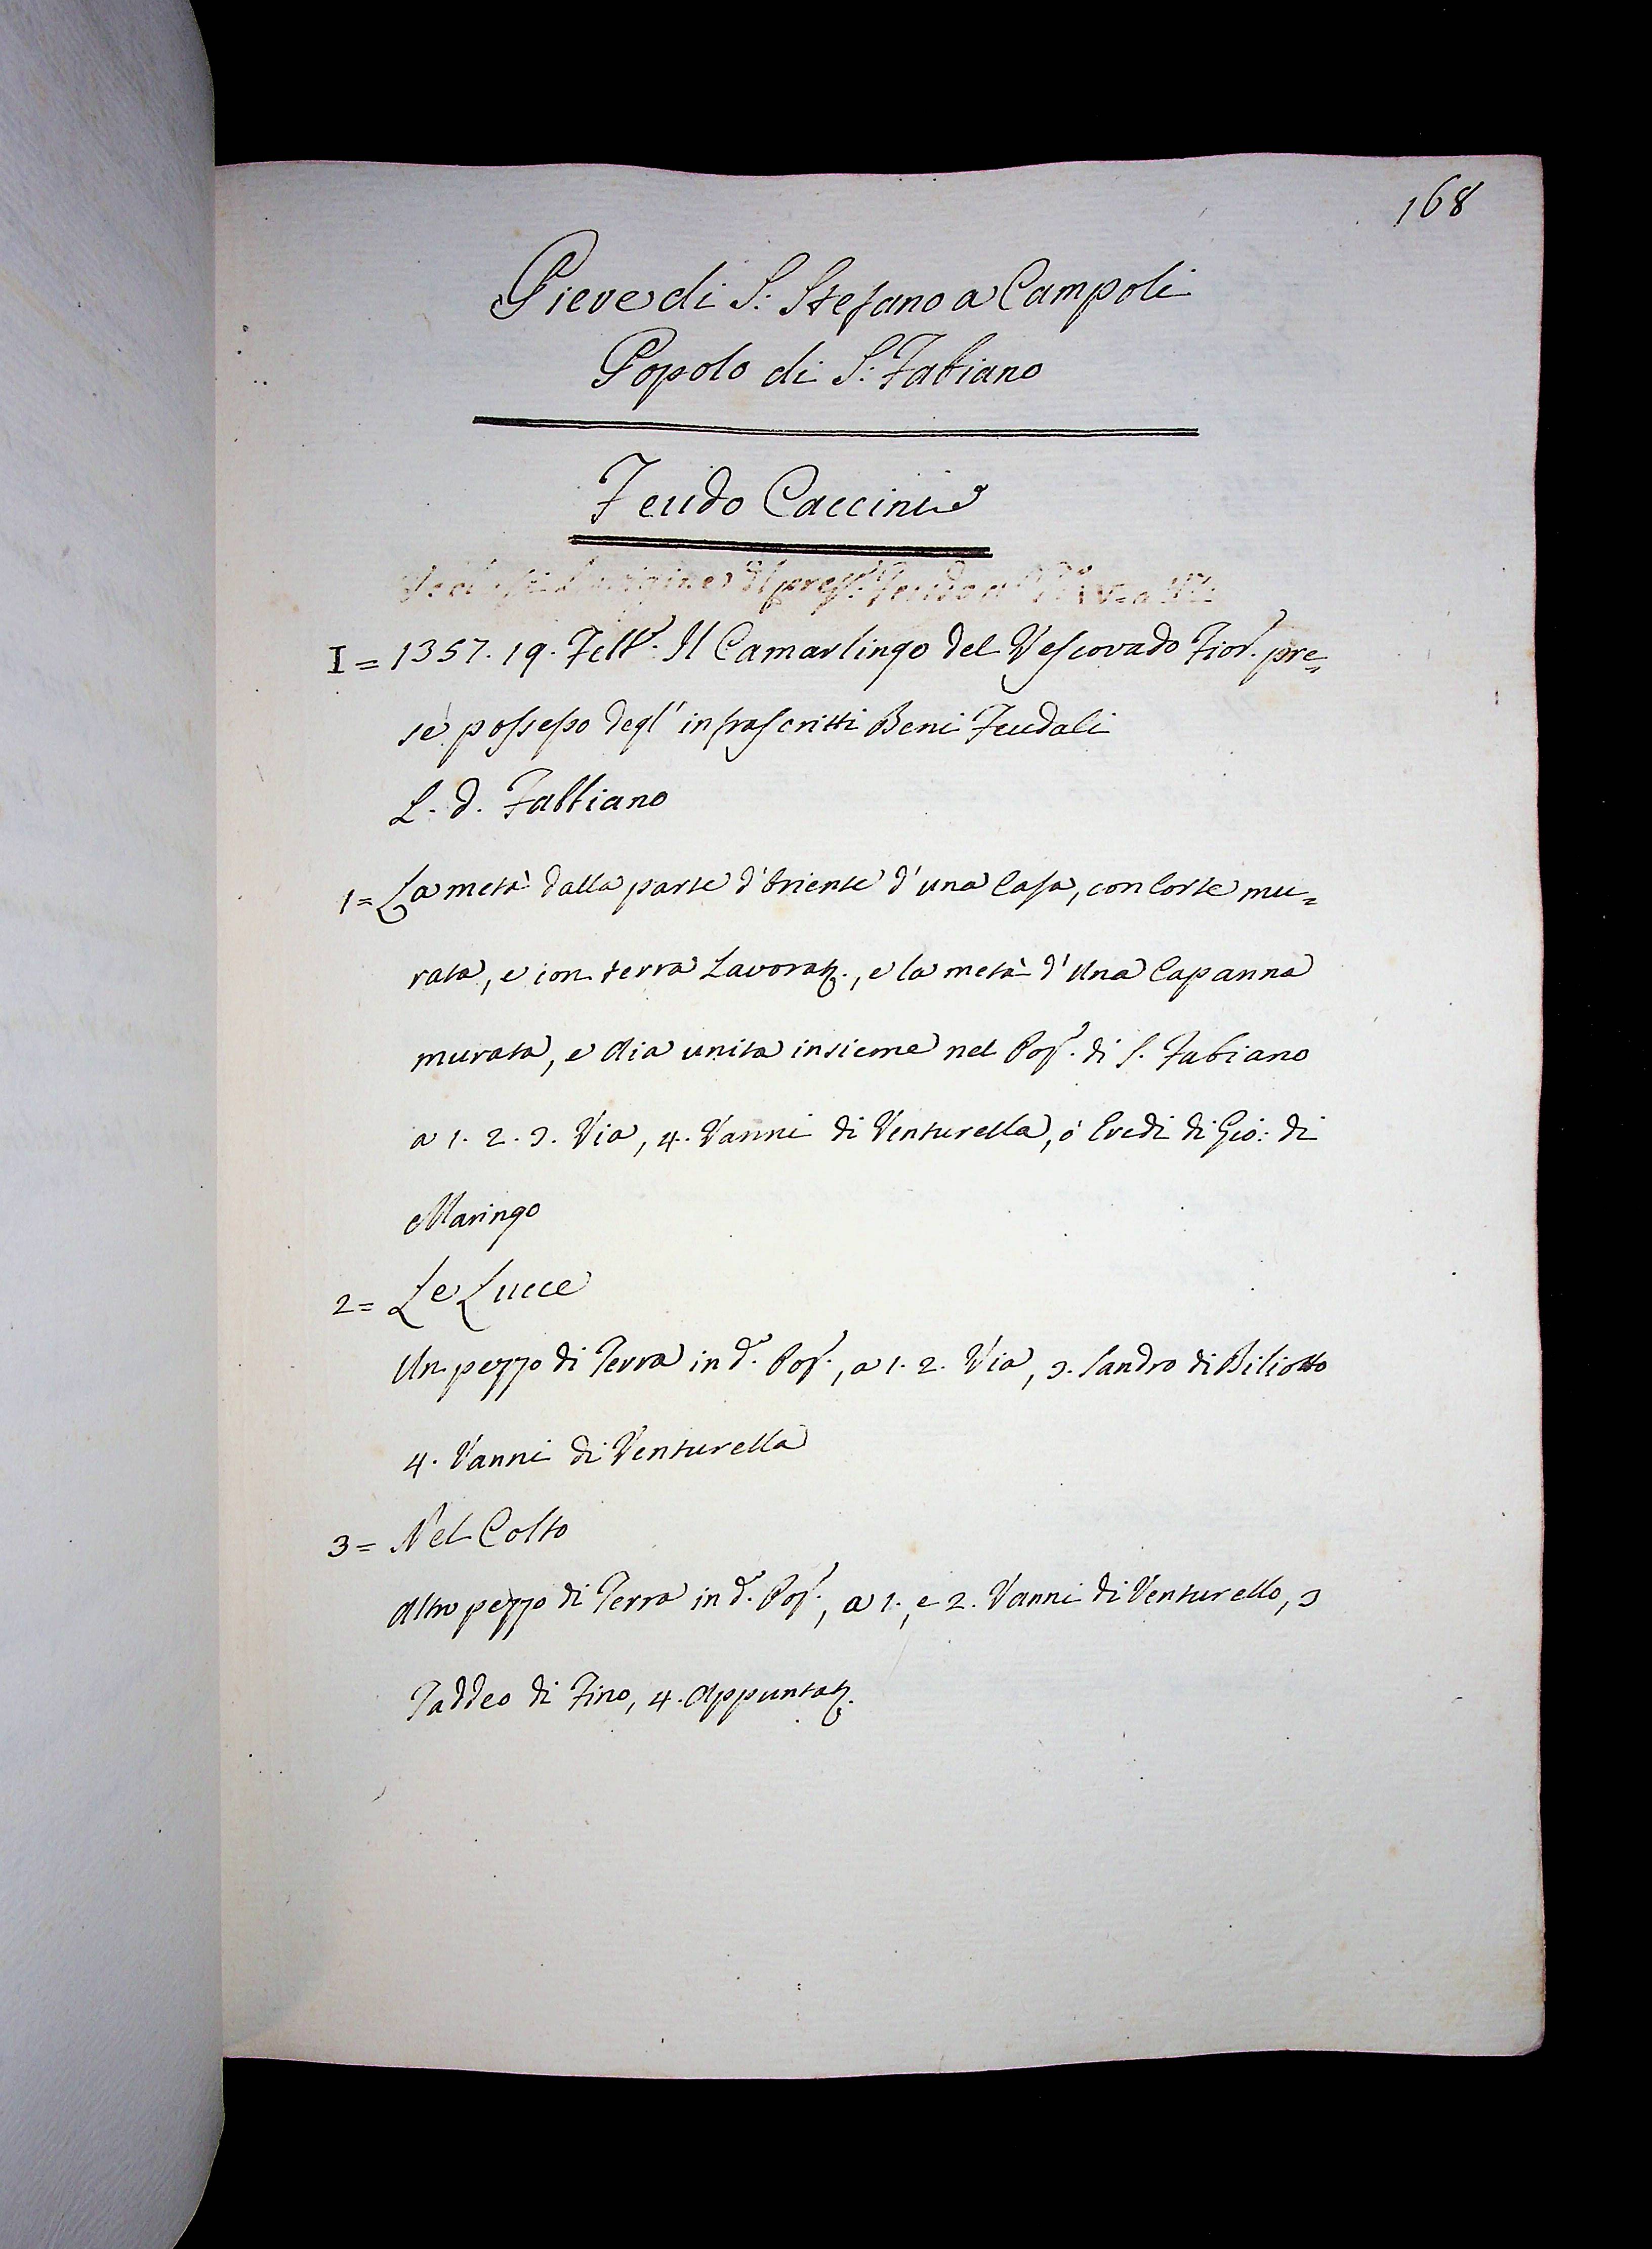 168
Pieve di S: Stefano a Campoli
Popolo di S: Fabiano
Feudo Caccini
I = 1357. 19. Febb.º Il Camarlingo del Vescovado Fior.º pre=
se possesso degl' infrascritti Beni Feudali
L. d. Fabbiano
1 = La metà dalla parte d'Oriente d'una Casa, con Corte mu=
rata, e con terra Lavorat., e la metà d'Una Capanna
murata, e Aia unita insieme nel Pop.º di S. Fabiano
a 1. 2. 3. Via, 4. Vanni di Venturella, ò Eredi di Gio: di
Maringo
2 = Le Lucce
Un pezzo di Terra in d.º Pop.º, a 1. 2. Via, 3. Sandro di Biliotto
4. Vanni di Venturella
3 = Nel Colto
Altro pezzo di Terra in d.º Pop.º, a 1., e 2. Vanni di Venturello, 3
Taddeo di Fino, 4. Appuntat.